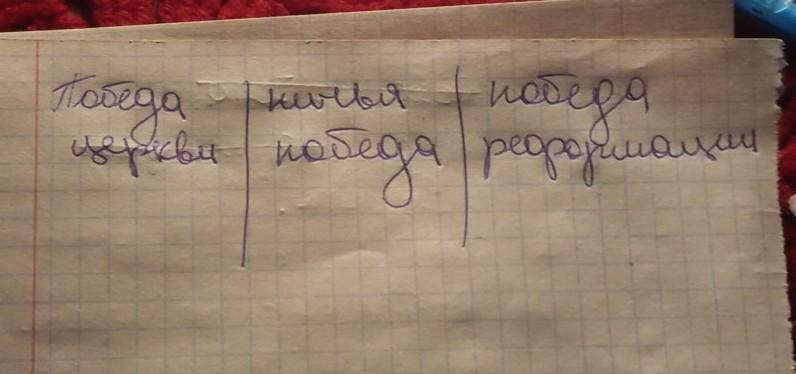 Победа ничья победа
церкви победа реформации